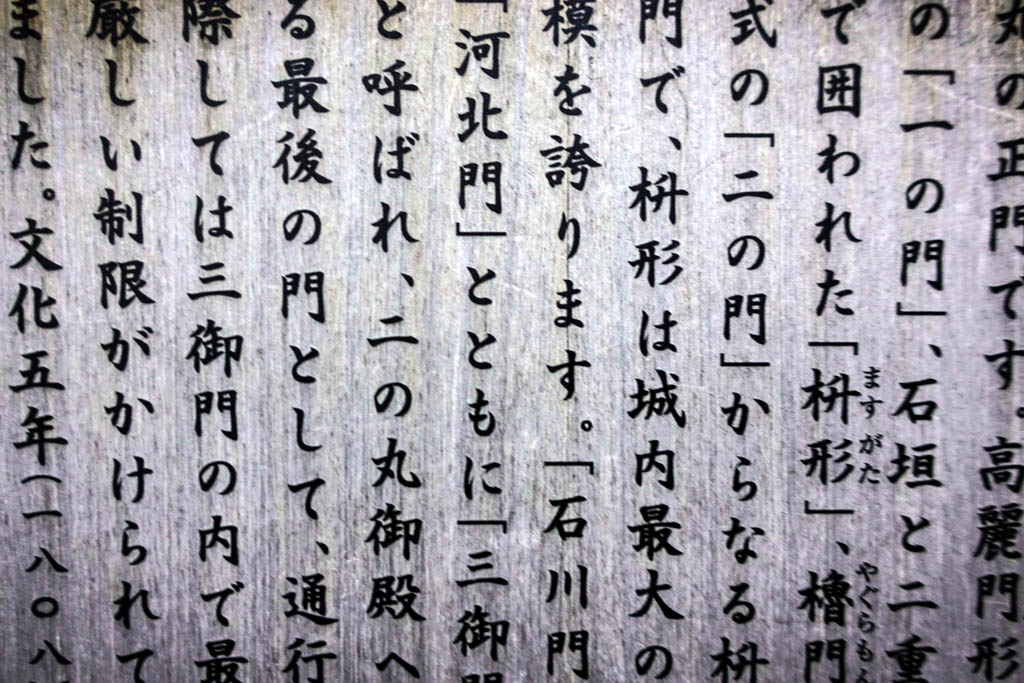 丸の正門です。高麗門形
の「一の門」、石垣と二重
で囲われた「枡形」、櫓門
ますがた
やぐらもん
式の「二の門」からなる枡
門で、枡形は城内最大の
模を誇ります。「石川門
「河北門」とともに「三御門
と呼ばれ、二の丸御殿へ
る最後の門として、通行
際しては三御門の内で最
厳しい制限がかけられて
ました。文化五年(一八〇八